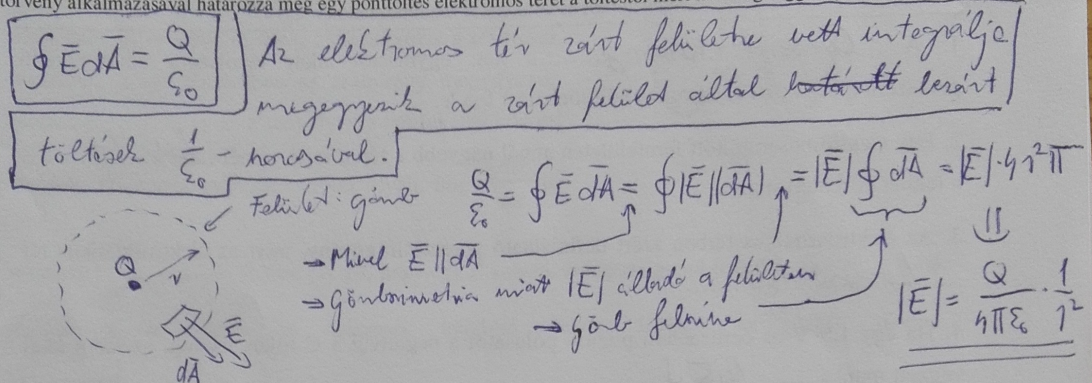 törvény alkalmazásával határozza meg egy ponttöltés elektromos terét a töltéstől
∮ĒdĀ = Q/ε₀
Az elektromos tér zárt felületre vett integrálja
megegyezik a zárt felület által határolt bezárt
töltések 1/ε₀ - horosával.
Felület: gömb
Q/ε₀ = ∮ĒdĀ = ∮|Ē||dĀ| = |Ē|∮dĀ = |Ē|·4r²π
Q
r
→ Mivel Ē||dĀ
→ Gömbszimetria miatt |Ē| állandó a felületen
→ Gömb felszíne
⇓
|Ē| = Q/4πε₀ · 1/r²
Ē
dĀ